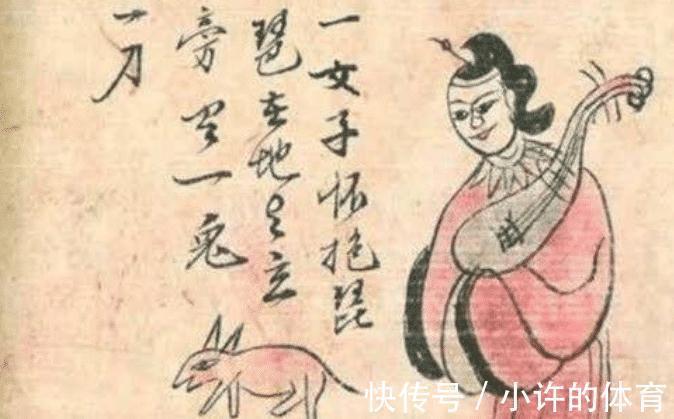 一女子怀抱琵
琶在地上立
旁一兔
一刀
快传号 / 小许的体育